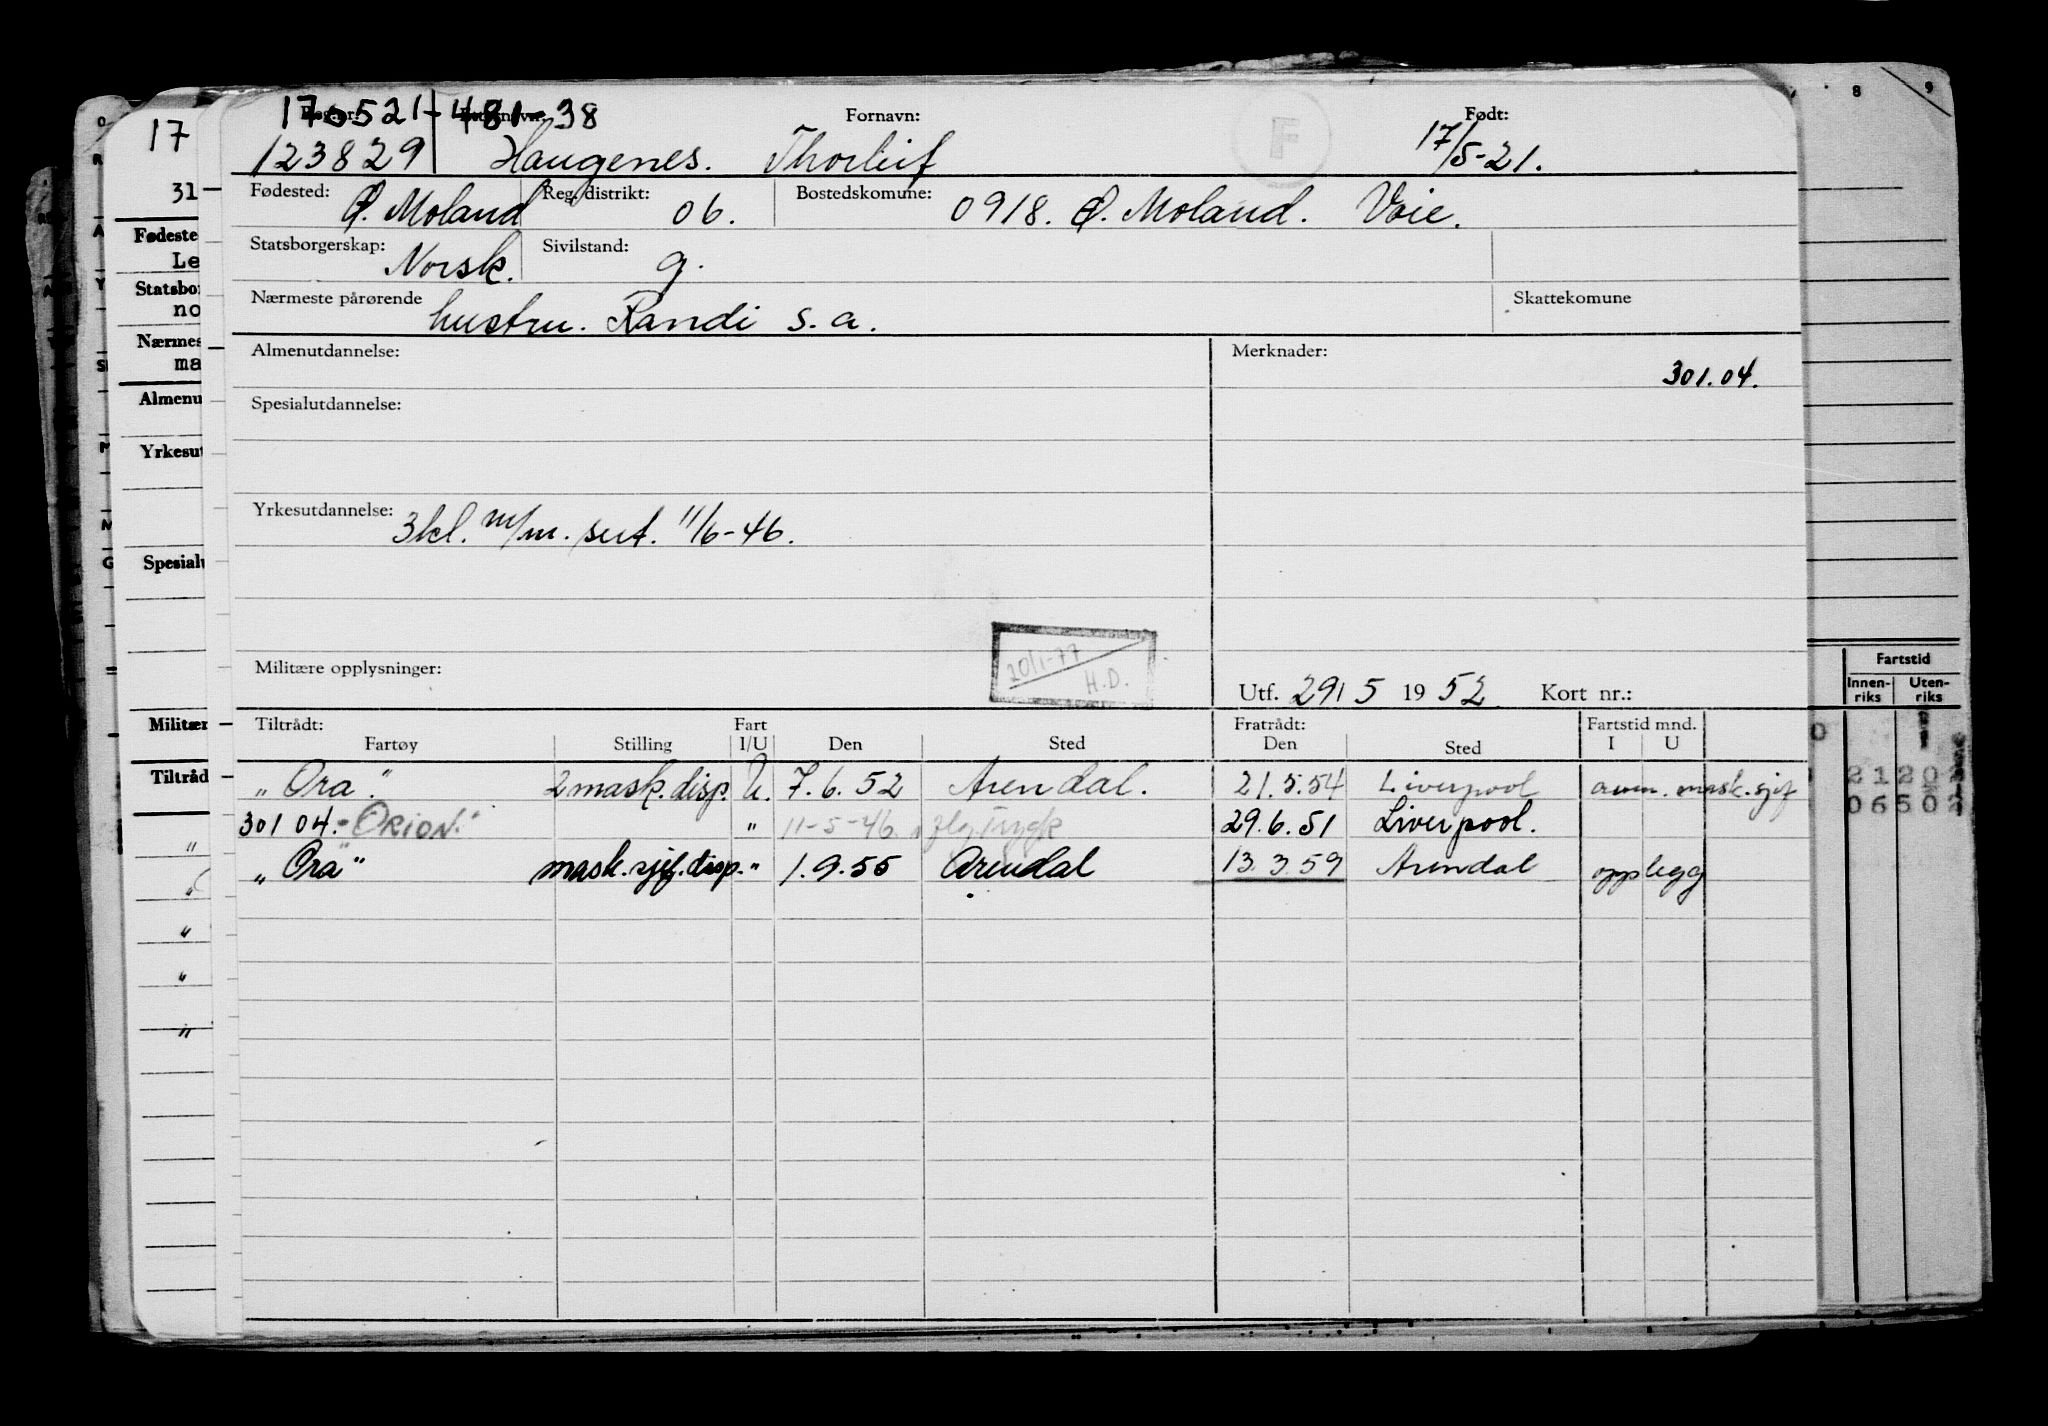 170521-481-38
Fornavn: F Født:
123829 Haugenes. Thorleif 17/5-21.
Fødested: Ø. Moland Reg. distrikt: 06. Bostedskomune: 0918. Ø. Moland. Voie.
Statsborgerskap: Norsk. Sivilstand: g.
Nærmeste pårørende hustru. Randi s.a. Skattekomune
Almenutdannelse: Merknader:
301.04.
Spesialutdannelse:
Yrkesutdannelse: 3kl. m/m. sert. 11/6-46.
20/1-77
H.D.
Militære opplysninger:
Utf. 29/5 1952 Kort nr.:
Tiltrådt: Fart Fratrådt: Fartstid mnd.
Fartøy Stilling I/U Den Sted Den Sted I U
"Ora" 2 mask. disp. U. 7.6.52 Arendal. 21.5.54 Liverpool avm. mask.sjef
301 04.-"ORION." " 11-5-46 29.6.51 Liverpool.
"Ora" mask.sjef.disp. " 1.9.55 Arendal 13.3.59 Arendal opplegg
17
31
Fødeste
Le
Statsbor
no
Nærmes
ma
Almenu
Yrkesut
Spesialu
Militær
Tiltråd
8 9
Fartstid
Innen-riks Uten-riks